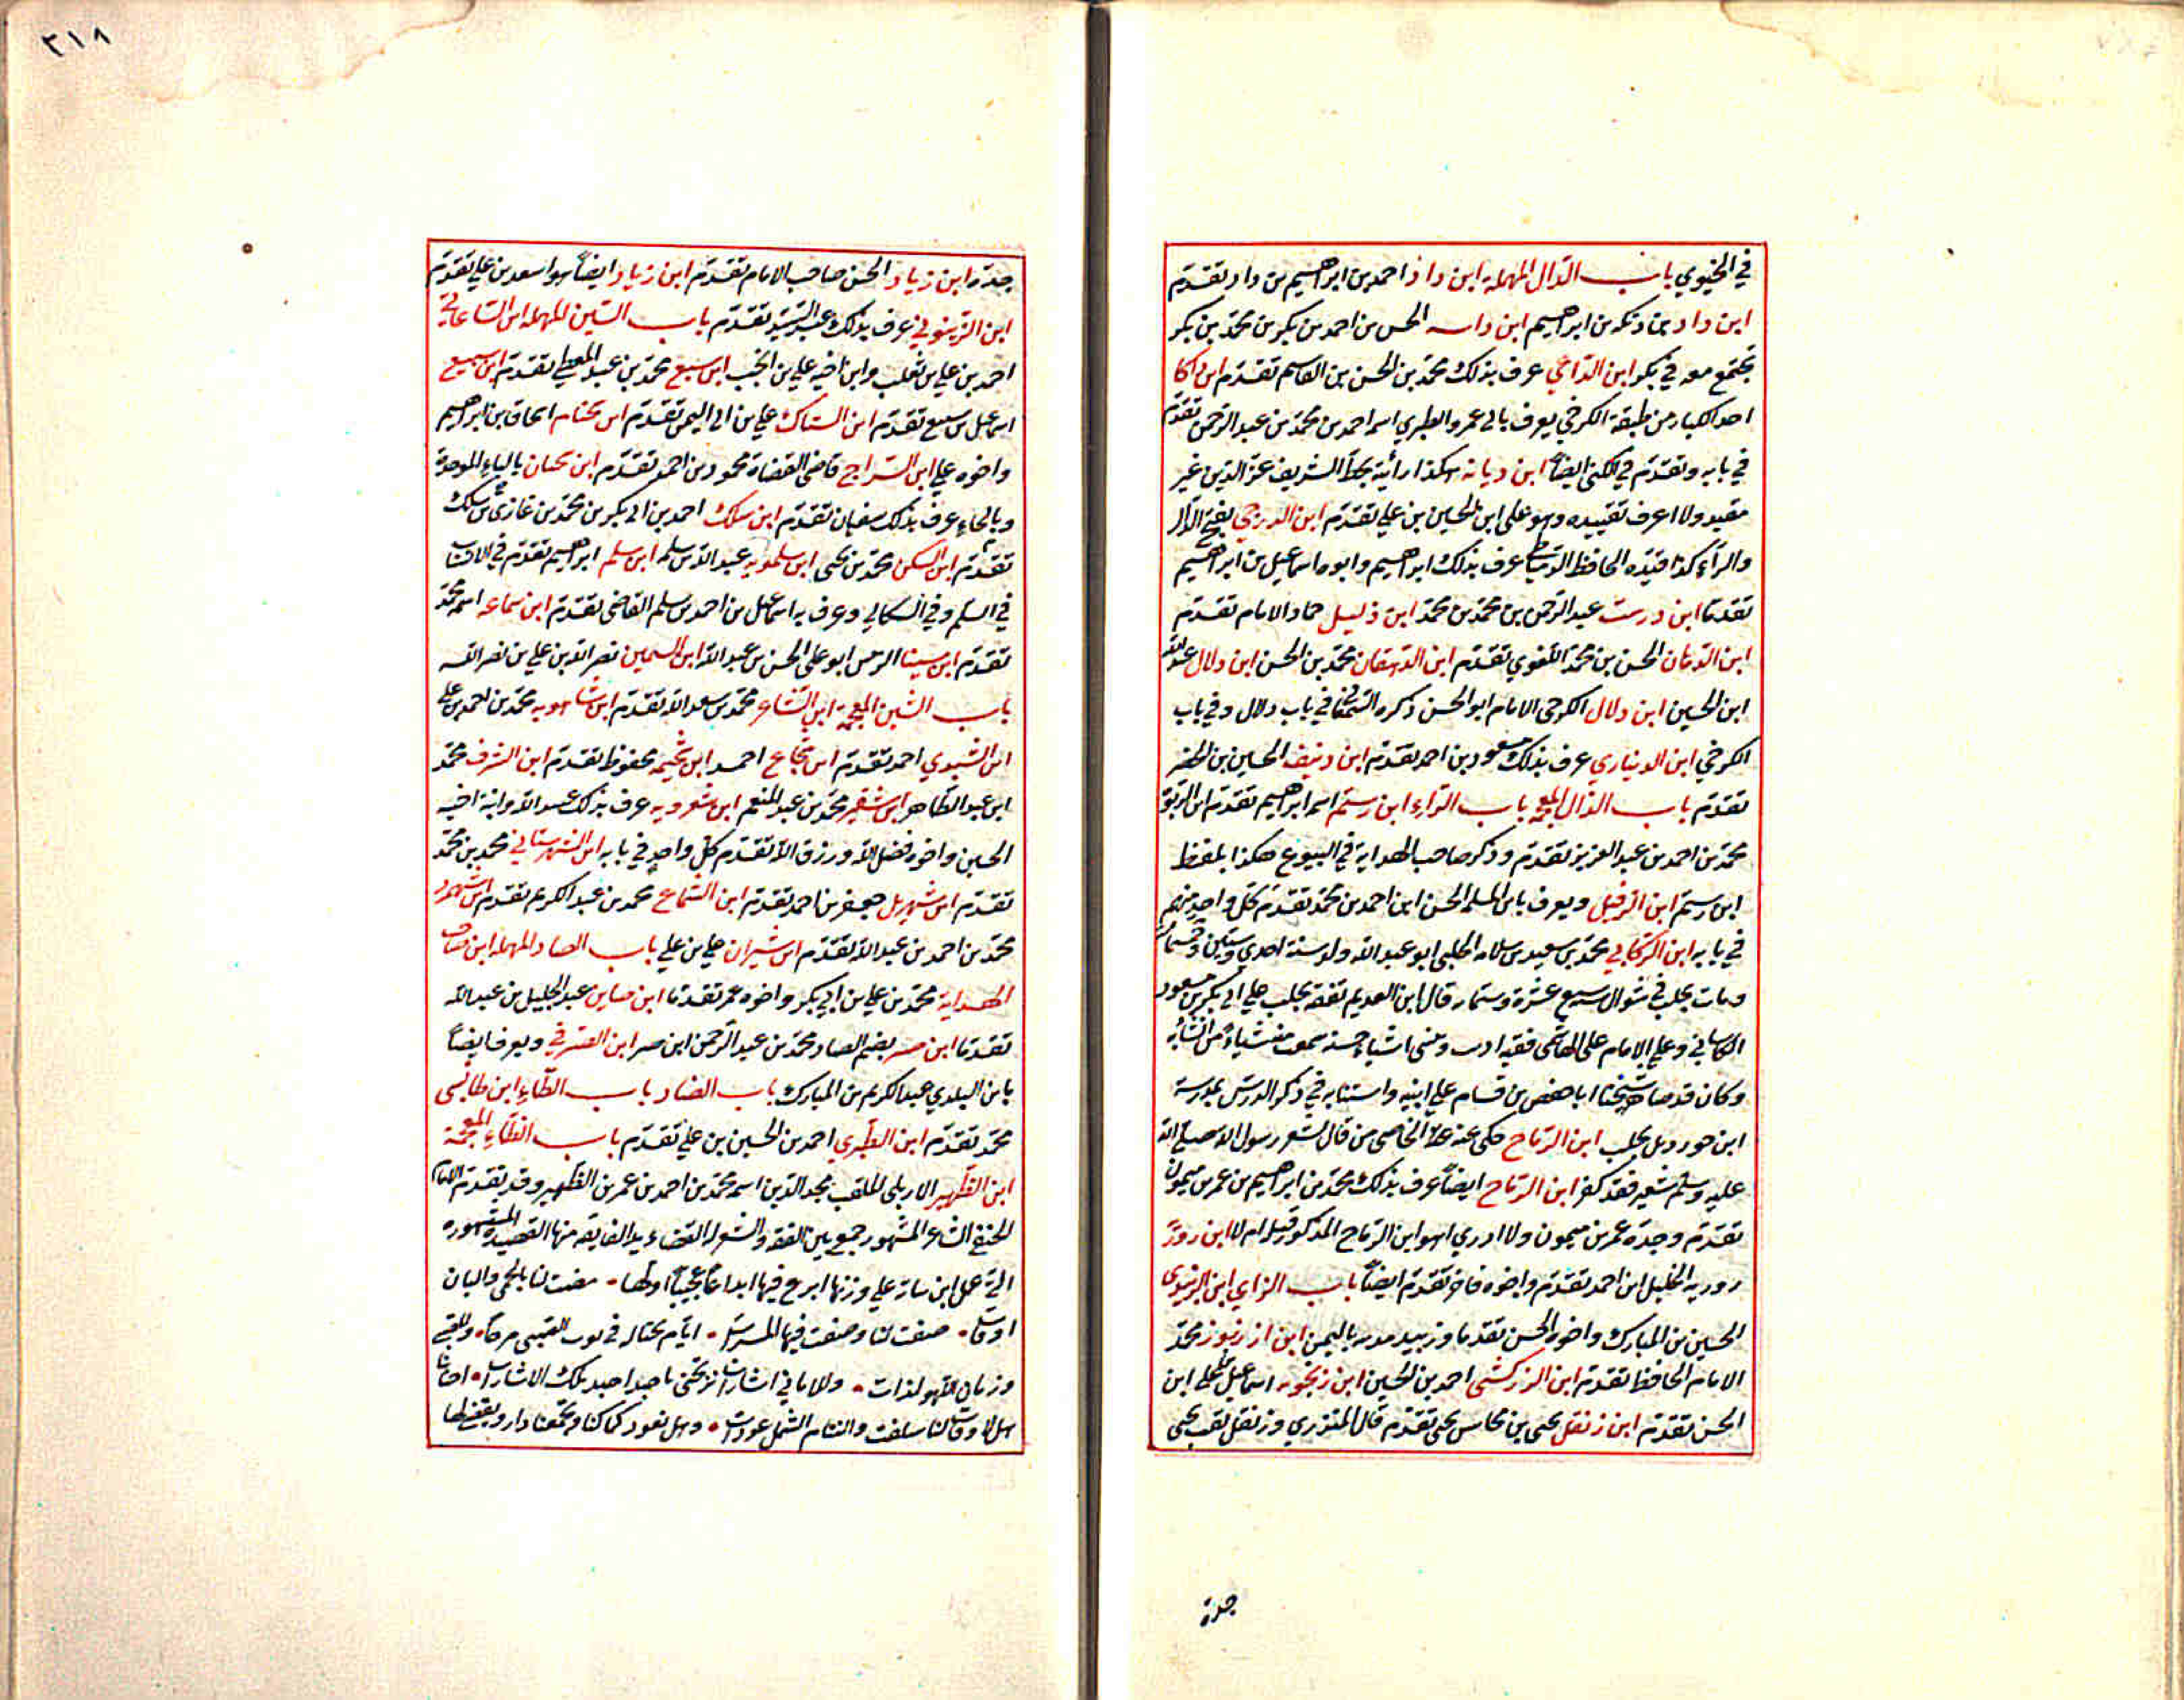 في الخيوي باب الدال المهملة ابن داذ احمد بن ابراهيم بن داد تقدم
ابن داد بن دنكه بن ابراهيم ابن داسه الحسن بن احمد بن بكر بن محمد بن بكر
يجتمع معه في بكر ابن الداعي عرف بذلك محمد بن الحسن بن القاسم تقدم ابن اكا
احد الكبار من طبقة الكرخي يعرف بابي عمرو الطبري اسمه احمد بن محمد بن عبد الرحمن تقدم
في بابه وتقدم في الكنى ايضا ابن ديانه هكذا رأيته بخط الشريف عز الدين غير
مقيد ولا اعرف تقييده وهو على ابن الحسين بن علي تقدم ابن الدرجي بفتح الدال
والراء كذا قيده الحافظ الدمياطي عرف بذلك ابراهيم وابوه اسماعيل بن ابراهيم
تقدما ابن درست عبد الرحمن بن محمد بن محمد ابن ذليل حماد الامام تقدم
ابن الدهان الحسن بن محمد اللغوي تقدم ابن الدهقان محمد بن الحسن ابن دلال عبد الله
ابن الحسين ابن دلال الكرخي الامام ابو الحسن ذكره السمعاني في باب دلال وفي باب
الكرخي ابن الدنياري عرف بذلك مسعود بن احمد تقدم ابن دنيف الحسين بن الخضر
تقدم باب الذال المعجمة باب الراء ابن رستم اسمه ابراهيم تقدم ابن الربوة
محمد بن احمد بن عبد العزيز تقدم وذكر صاحب الهداية في البيوع هكذا بلفظ
ابن رستم ابن الرفيل ويعرف بابن المسلمه الحسن ابن احمد بن محمد تقدم كل واحد منهم
في بابه ابن الركابي محمد بن سعيد بن سلامه الحلبي ابو عبد الله ولد سنة احدى وستين وخمسمائة
ومات بحلب في شوال سنة سبع عشرة وستمائة قال ابن العديم تفقه بحلب على ابي بكر بن مسعود
الكاساني وعلى الامام على الهاشمي فقيه اديب وينشئ اشياء حسنة سمعت منه شياء من انشائه
وكان قد صاهر شيخنا ابا حفص بن قسام علي ابنته واستنابه في ذكر الدرس بمدرسة
ابن جورديل بحلب ابن الرماح حكى عنه علاء الخاصى من قال لشعر رسول الله صلى الله
عليه وسلم شعير فقد كفر ابن الرماح ايضا عرف بذلك محمد بن ابراهيم بن عمر بن ميمون
تقدم وجده عمر بن ميمون ولا ادري اهو ابن الرماح المذكور قبل ام لا ابن روز
روريه الخليل ابن احمد تقدم واخوه فاخر تقدم ايضا باب الزاي ابن الزبيدى
الحسين بن المبارك واخوه الحسن تقدما وزبيد مدينه باليمن ابن ازرنبوز محمد
الامام الحافظ تقدم ابن الزركشي احمد بن الحسين ابن زنجويه اسماعيل بن علي ابن
الحسن تقدم ابن زنقل يحيى بن محاسن يحيى تقدم قال المنذري وزنقل لقب يحيى
جدة
٣١٨
جدة ابن زياد الحسن صاحب الامام تقدم ابن زياد ايضا هو اسعد بن علي تقدم
ابن الزيتوني عرف بذلك عبد السيد تقدم باب السين المهملة ابن الساعاتي
احمد بن علي بن ثعلب وابن اخيه علي بن انجب ابن سبع محمد بن عبد المعطي تقدم ابن سبيع
اسماعيل بن سبيع تقدم ابن السباك علي بن ابي اليمن تقدم ابن سختام اسحاق بن ابراهيم
واخوه علي ابن السراج قاضي القضاة محمود بن احمد تقدم ابن سحبان بالباء الموحدة
وبالحاء عرف بذلك سفيان تقدم ابن سلك احمد بن ابي بكر بن محمد بن غازي بن سلك
تقدم ابن السكن محمد بن يحيى ابن سلمويه عبد الله بن سلمه ابن سلم ابراهيم تقدم في الانساب
في السلم وفي السكاني وعرف به اسماعيل بن احمد بن سلم القاضي تقدم ابن سماعه اسمه محمد
تقدم ابن سينا الرئيس ابو علي الحسن بن عبد الله ابن السمين نصر الله بن علي بن نصر الله
باب الشين المعجمة ابن الشاعر محمد بن سعد الله تقدم ابن شاهويه محمد بن احمد بن علي
ابن الشبوي احمد تقدم ابن شجاع احمد ابن شحيمه محفوظ تقدم ابن الشرف محمد
ابن عبد الطاهر ابن شقير محمد بن عبد المنعم ابن شعرويه عرف بذلك عبد الله وابنة اخيه
الحسين واخوه فضل الله ورزق الله تقدم كل واحد في بابه ابن الشهرستاني محمد بن محمد
تقدم ابن شهريل جعفر بن احمد تقدم ابن الشماع محمد بن عبد الكريم تقدم ابن شهمرد
محمد بن احمد بن عبد الله تقدم ابن شيران علي بن علي باب الصاد المهملة ابن صاحب
الهداية محمد بن علي بن ابي بكر واخوه عمر تقدما ابن صاين عبد الجليل بن عبد الله
تقدما ابن صبر بضم الصاد محمد بن عبد الرحمن ابن صبر ابن الصيرفي ويعرف ايضا
بابن البلدي عبد الكريم بن المبارك باب الضاد باب الطاء ابن طابسي
محمد تقدم ابن الطبري احمد بن الحسين بن علي تقدم باب الظاء المعجمة
ابن الظهير الاربلي الملقب بمجد الدين اسمه محمد بن احمد بن عمر بن الظهير وقد تقدم الامام
الحنفي الشاعر المشهور جمع بين الفقه والشعر له القصائد الفايقة منها القصيدة المشهورة
التي عمل ابن سارة علي وزنها ابدع فيها ابداعا عجيبا اولها • مضت لنا بالحمى والبان
اوقات • صفت لنا وصفت فيها المسرات • ايام نختال في ثوب الصبى مرحا •
وزمان اللهو لذات • وللاماني اشارات
هل لاوقاتنا سلفت والتئام الشمل عودات • وهل نعود كما كنا وتجمعنا دار